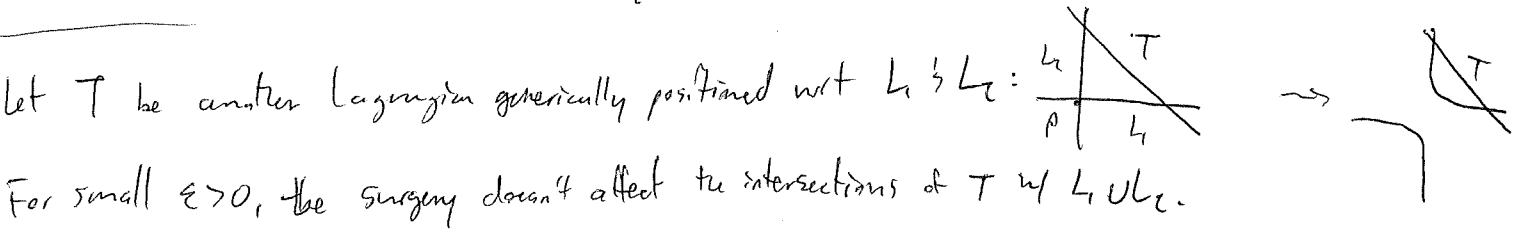 Let T be another Lagrangian generically positioned wrt L₁ & L₂ :
L₂ T
p L₁
T
For small ε>0, the surgery doesn't affect the intersections of T w/ L₁ ∪ L₂.